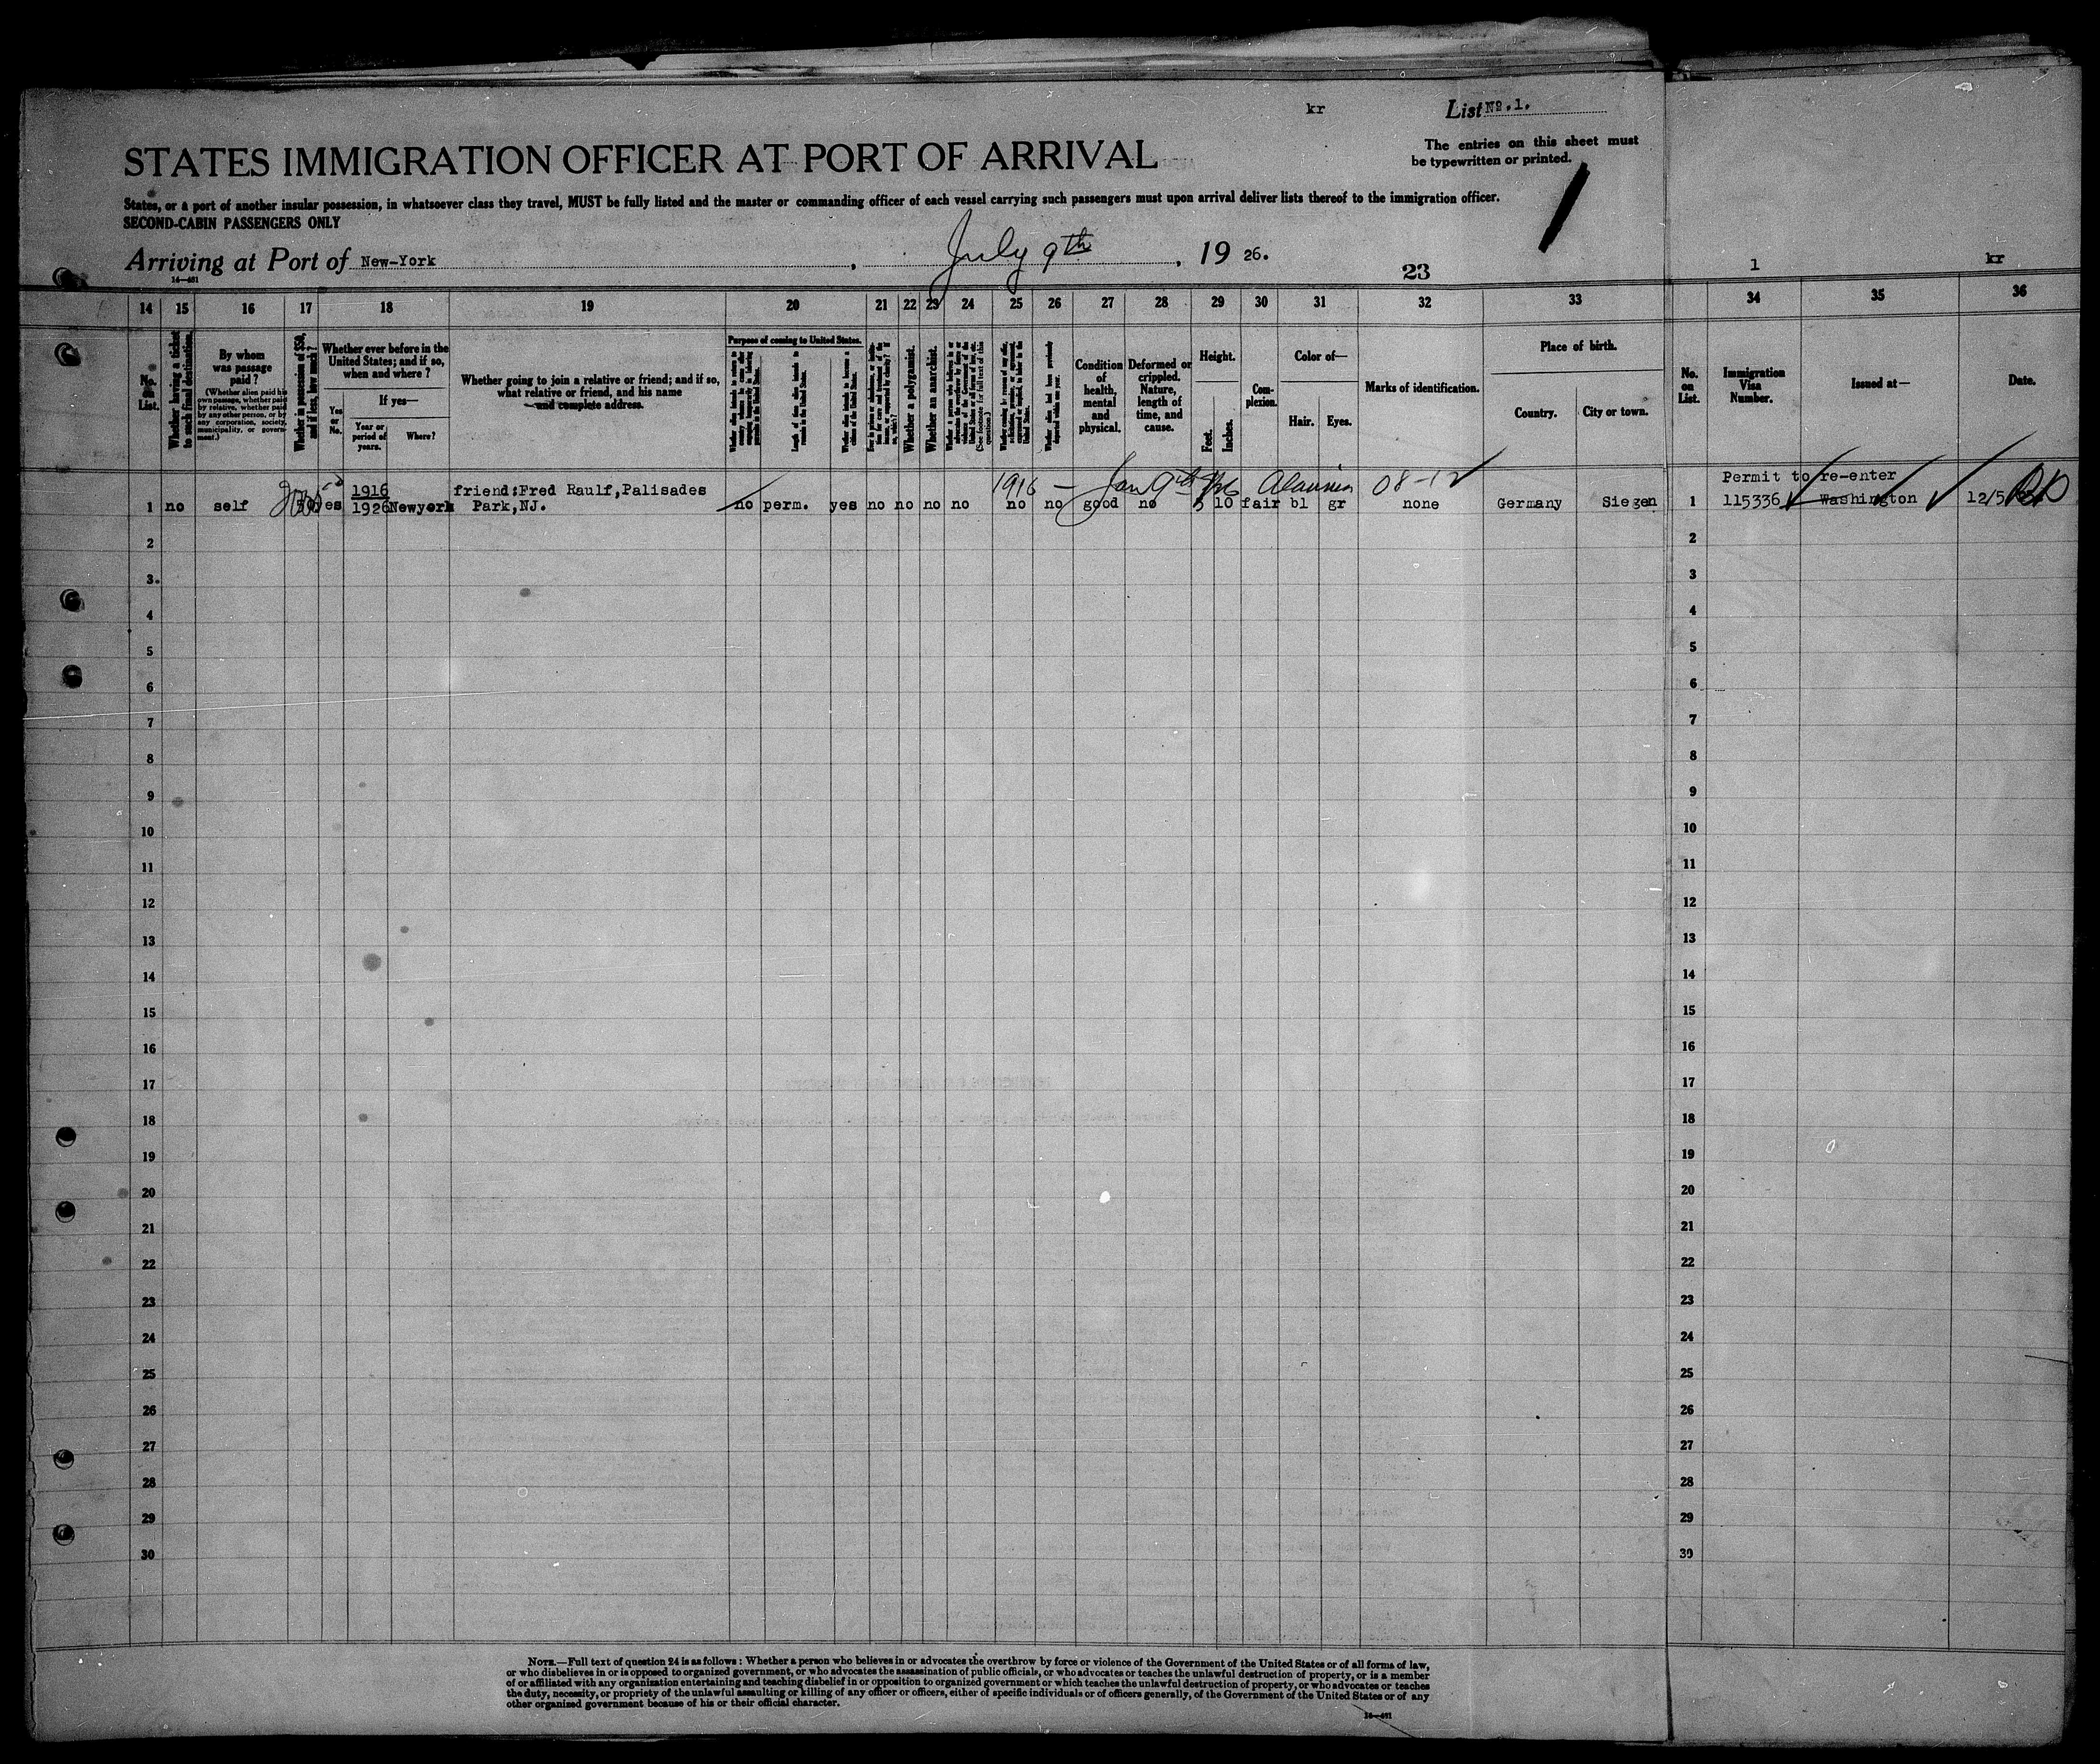 kr
List No. 1.
The entries on this sheet must
be typewritten or printed.
STATES IMMIGRATION OFFICER AT PORT OF ARRIVAL
States, or a port of another insular possession, in whatsoever class they travel, MUST be fully listed and the master or commanding officer of each vessel carrying such passengers must upon arrival deliver lists thereof to the immigration officer.
SECOND-CABIN PASSENGERS ONLY
Arriving at Port of New-York, July 9th, 19 26.
16—481
23
1
kr
14 15 16 17 18 19 20 21 22 23 24 25 26 27 28 29 30 31 32 33 34 35 36
No. on List.
Whether having a ticket to such final destination.
By whom was passage paid?
(Whether alien paid his own passage, whether paid by relative, whether paid by any other person, or by any corporation, society, municipality, or government.)
Whether in possession of $50, and if less, how much?
Whether ever before in the United States; and if so, when and where?
Yes or No.
If yes—
Year or period of years.
Where?
Whether going to join a relative or friend; and if so, what relative or friend, and his name and complete address.
Purpose of coming to United States.
Length of time alien intends to remain in the United States.
Whether alien intends to become a citizen of the United States.
Whether a polygamist.
Whether an anarchist.
Condition of health, mental and physical.
Deformed or crippled. Nature, length of time, and cause.
Height.
Feet.
Inches.
Complexion.
Color of—
Hair.
Eyes.
Marks of identification.
Place of birth.
Country.
City or town.
No. on List.
Immigration Visa Number.
Issued at—
Date.
1916 friend:Fred Raulf,Palisades 1916 — Jan 9th 08-12 Permit to re-enter
1 no self yes 1926 Newyork Park,NJ. no perm. yes no no no no no no good no 5 10 fair bl gr none Germany Siegen 1 115336 Washington 12/5
2 2
3. 3
4 4
5 5
6 6
7 7
8 8
9 9
10 10
11 11
12 12
13 13
14 14
15 15
16 16
17 17
18 18
19 19
20 20
21 21
22 22
23 23
24 24
25 25
26 26
27 27
28 28
29 29
30 30
NOTE.—Full text of question 24 is as follows: Whether a person who believes in or advocates the overthrow by force or violence of the Government of the United States or of all forms of law,
or who disbelieves in or is opposed to organized government, or who advocates the assassination of public officials, or who advocates or teaches the unlawful destruction of property, or is a member
of or affiliated with any organization entertaining and teaching disbelief in or opposition to organized government or which teaches the unlawful destruction of property, or who advocates or teaches
the duty, necessity, or propriety of the unlawful assaulting or killing of any officer or officers, either of specific individuals or of officers generally, of the Government of the United States or of any
other organized government because of his or their official character.
16—481